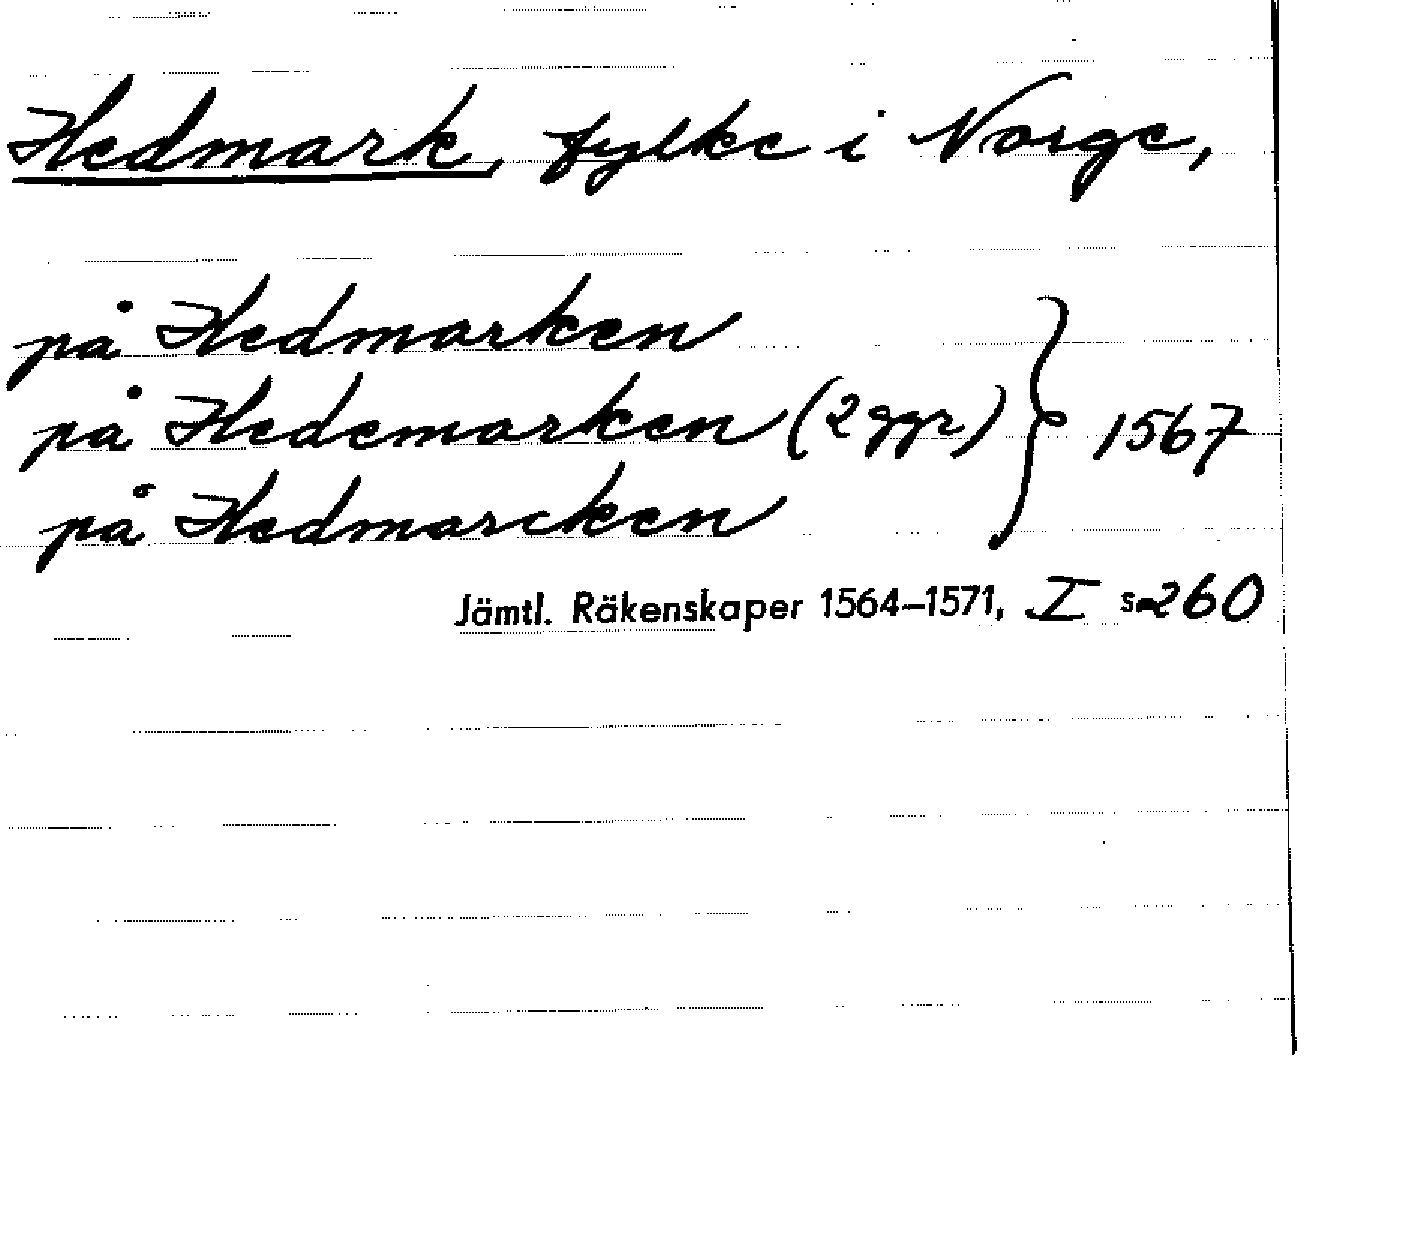 Hedmark, fylke i Norge,
på Hedmarken
på Hedemarken (2 ggr) } 1567
på Hedmarcken
Jämtl. Räkenskaper 1564–1571, I s. 260